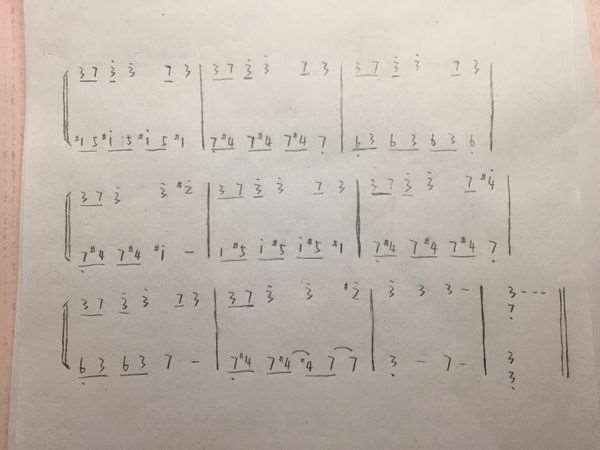 3 7 3̇ 3̇ 7 3 | 3 7 3̇ 3̇ 7 3 | 3 7 3̇ 3̇ 7 3 |
#1 5 #1̇ 5 #1̇ 5 #1 | 7̣ #4 7 #4 7 #4 7̣ | 6̣ 3 6 3 6 3 6̣ |
3 7 3̇ 3̇ #2̇ | 3 7 3̇ 3̇ 7 3 | 3 7 3̇ 3̇ 7 #4̇ |
7̣ #4 7 #4 #1̇ – | 1 #5 1̇ #5 1̇ #5 #1 | 7̣ #4 7 #4 7 #4 7̣ |
3 7 3̇ 3̇ 7 3 | 3 7 3̇ 3̇ #2̇ | 3̇ 3 3 – | 3 - - - ‖
7̣
6̣ 3 6 3 7 – | 7̣ #4 7 #4 #4 7 7 | 3̣ – 7 – | 3
3̣